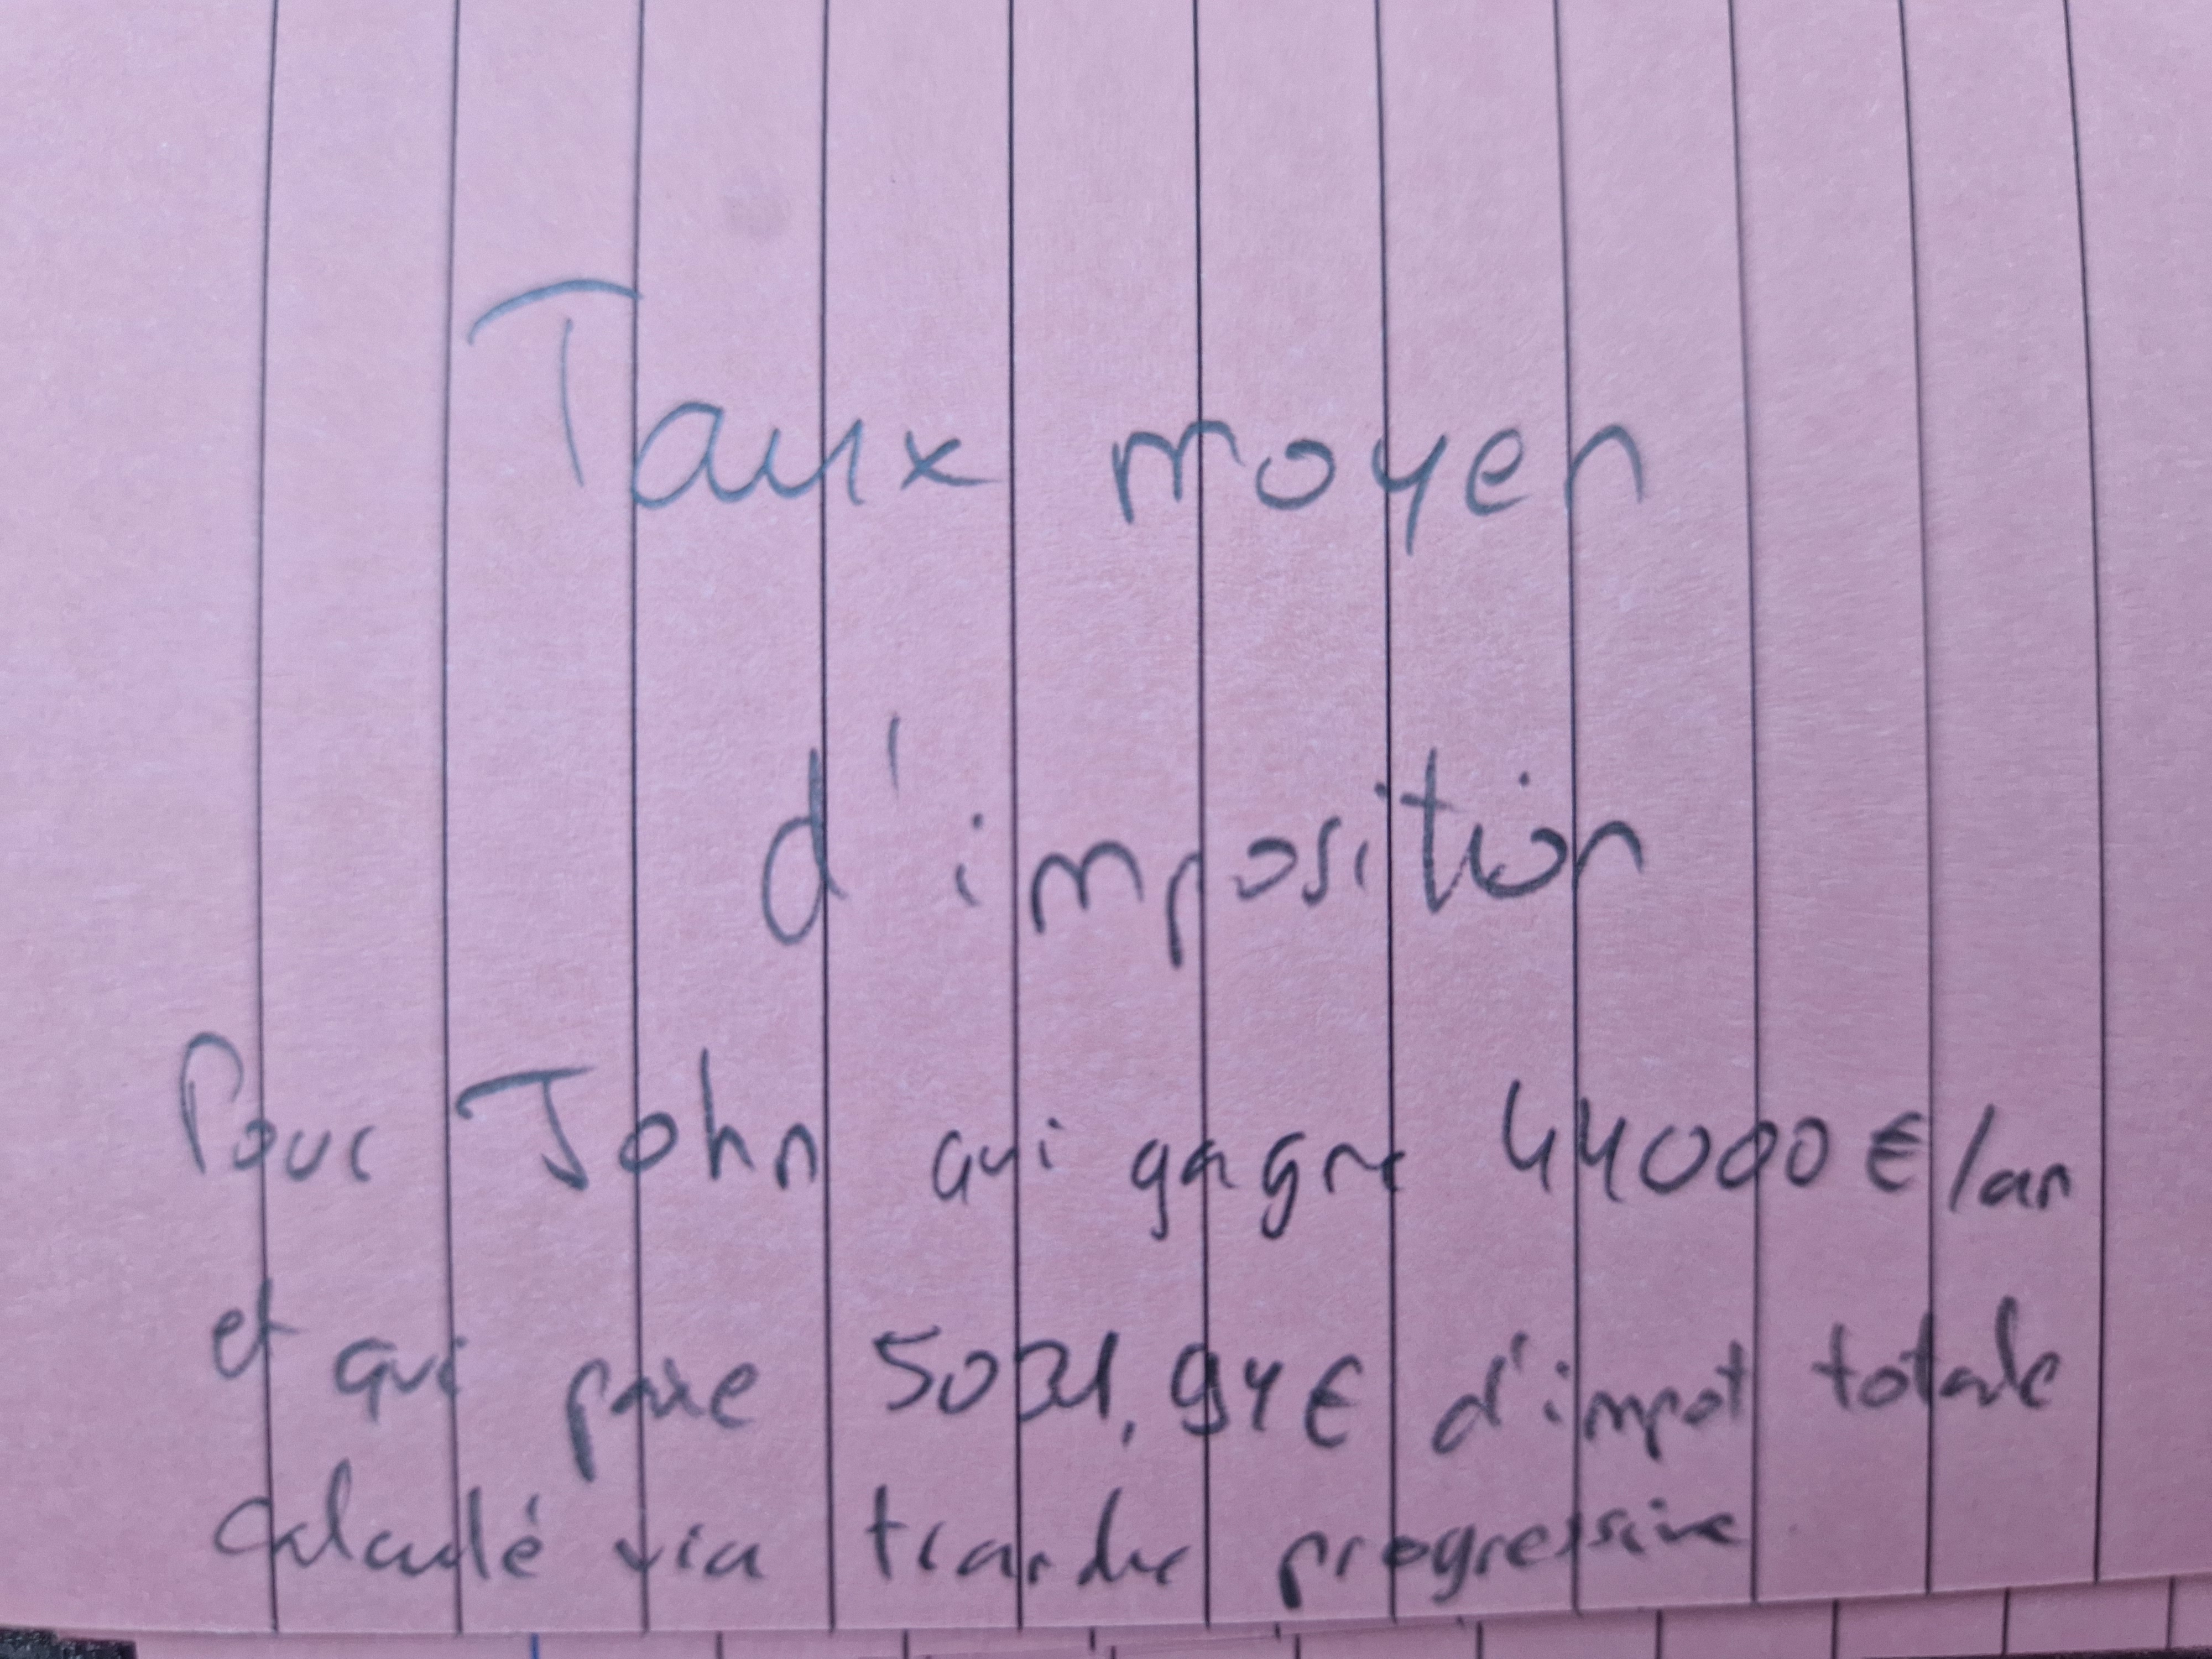 Taux moyen
d'imposition
Pour John qui gagne 44000€/an
et qui paie 5031,94€ d'impot totale
calculé via tranche progressive